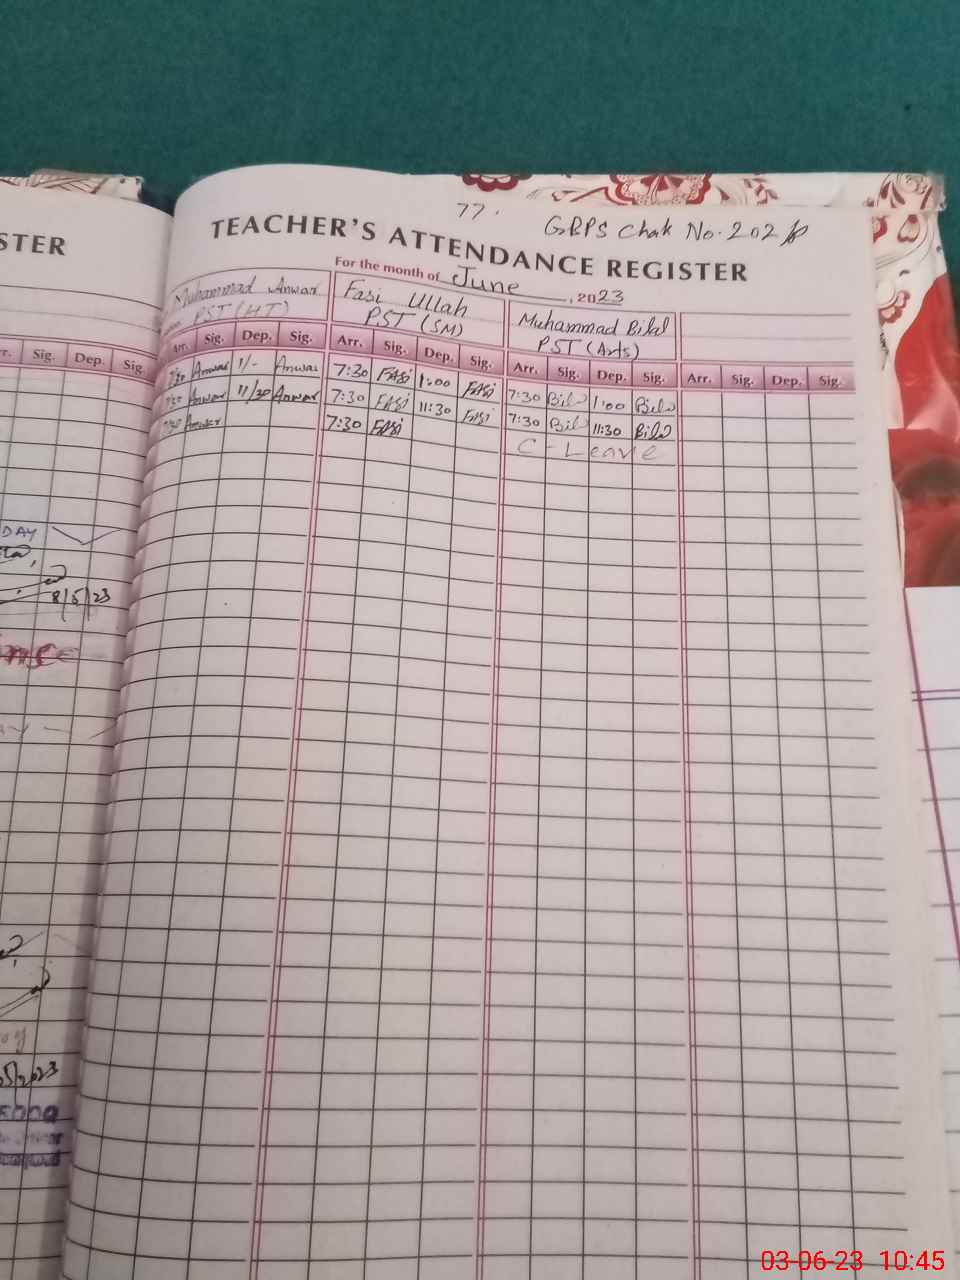 77.
GBPS Chak No. 202
STER
TEACHER'S ATTENDANCE REGISTER
For the month of June, 2023
Muhammad Anwar Fasi Ullah Muhammad Bilal
PST (HT) PST (SM) PST (Arts)
Sig. Dep. Sig. Arr. Sig. Dep. Sig. Arr. Sig. Dep. Sig. Arr. Sig. Dep. Sig. Arr. Sig. Dep. Sig.
7:30 Anwar 1/- Anwar 7:30 FASi 1:00 FASi 7:30 Bilal 1:00 Bilal
7:30 Anwar 11/30 Anwar 7:30 FASi 11:30 FASi 7:30 Bilal 11:30 Bilal
7:30 Anwar 7:30 FASi C - Leave
DAY
8/5/23
05/2023
03-06-23 10:45